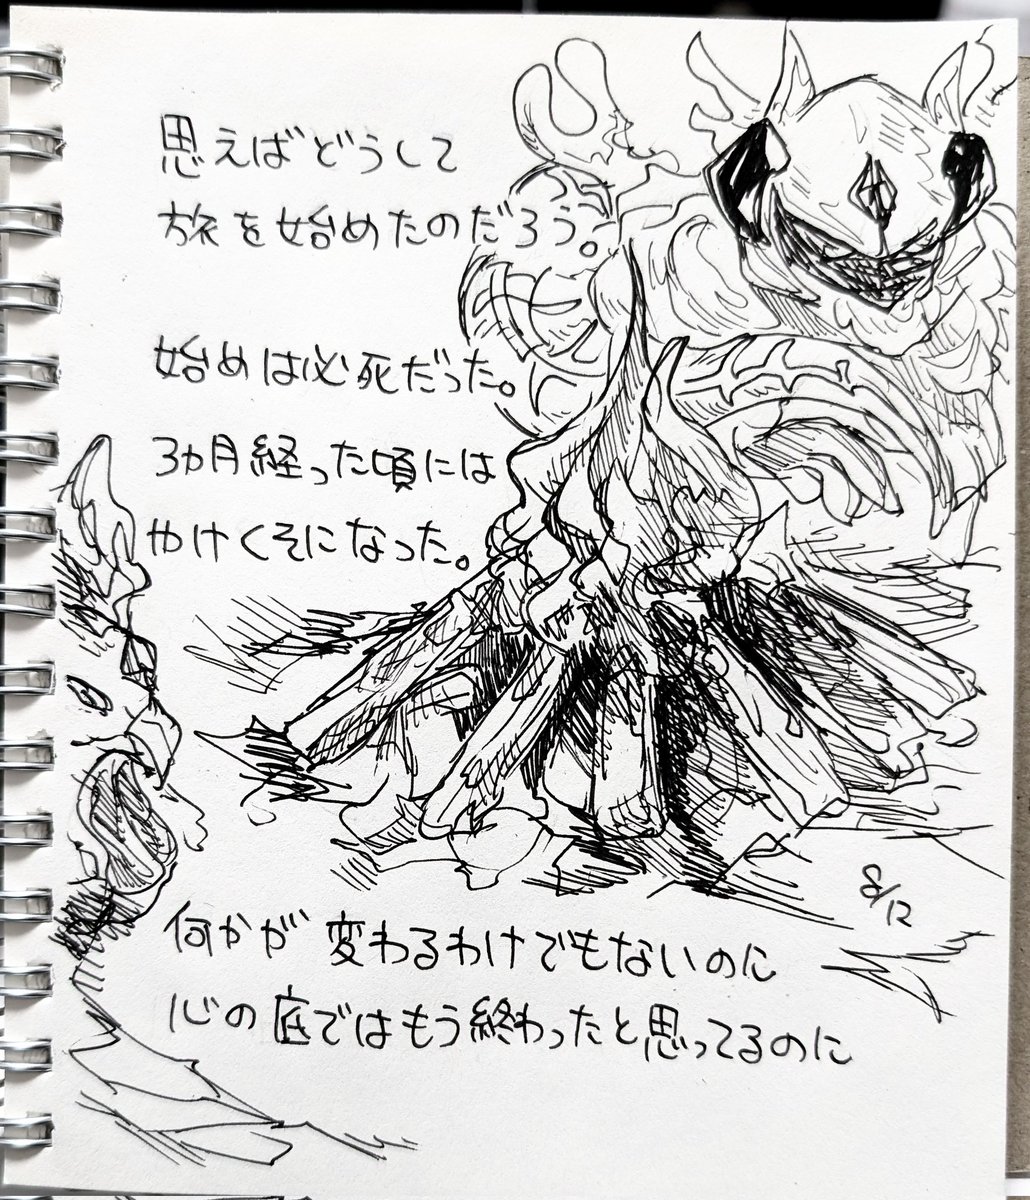 思えばどうして
旅を始めたのだろう。
始めは必死だった。
3カ月経った頃には
やけくそになった。
8/12
何かが変わるわけでもないのに
心の底ではもう終わったと思ってるのに